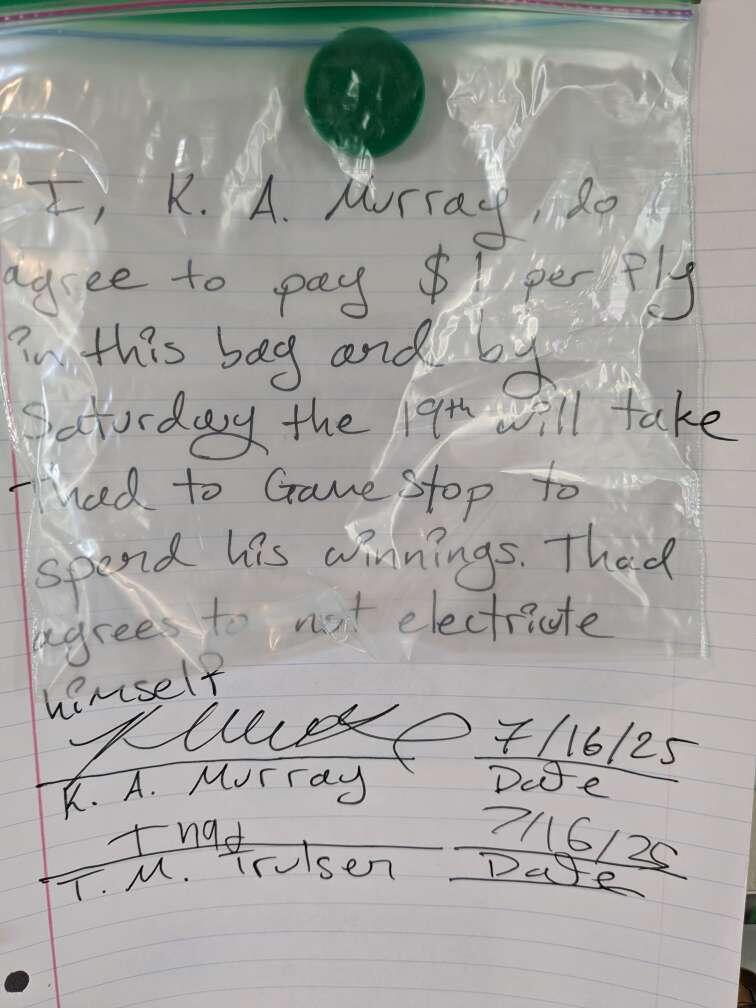 I, K. A. Murray, do
agree to pay $1 per fly
in this bag and by
Saturday the 19th will take
Thad to GameStop to
spend his winnings. Thad
agrees to not electricute
himself
7/16/25
K. A. Murray Date
Thad 7/16/25
T. M. Trulsen Date